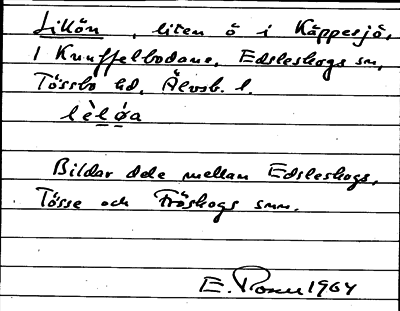 Lillön, liten ö i Käppesjö,
1 Knuffelbodane, Edsleskogs sn,
Tössbo hd, Älvsb. l.
lèløa
Bildar dele mellan Edsleskogs,
Tösse och Fröskogs snn.
E. Rosen 1964